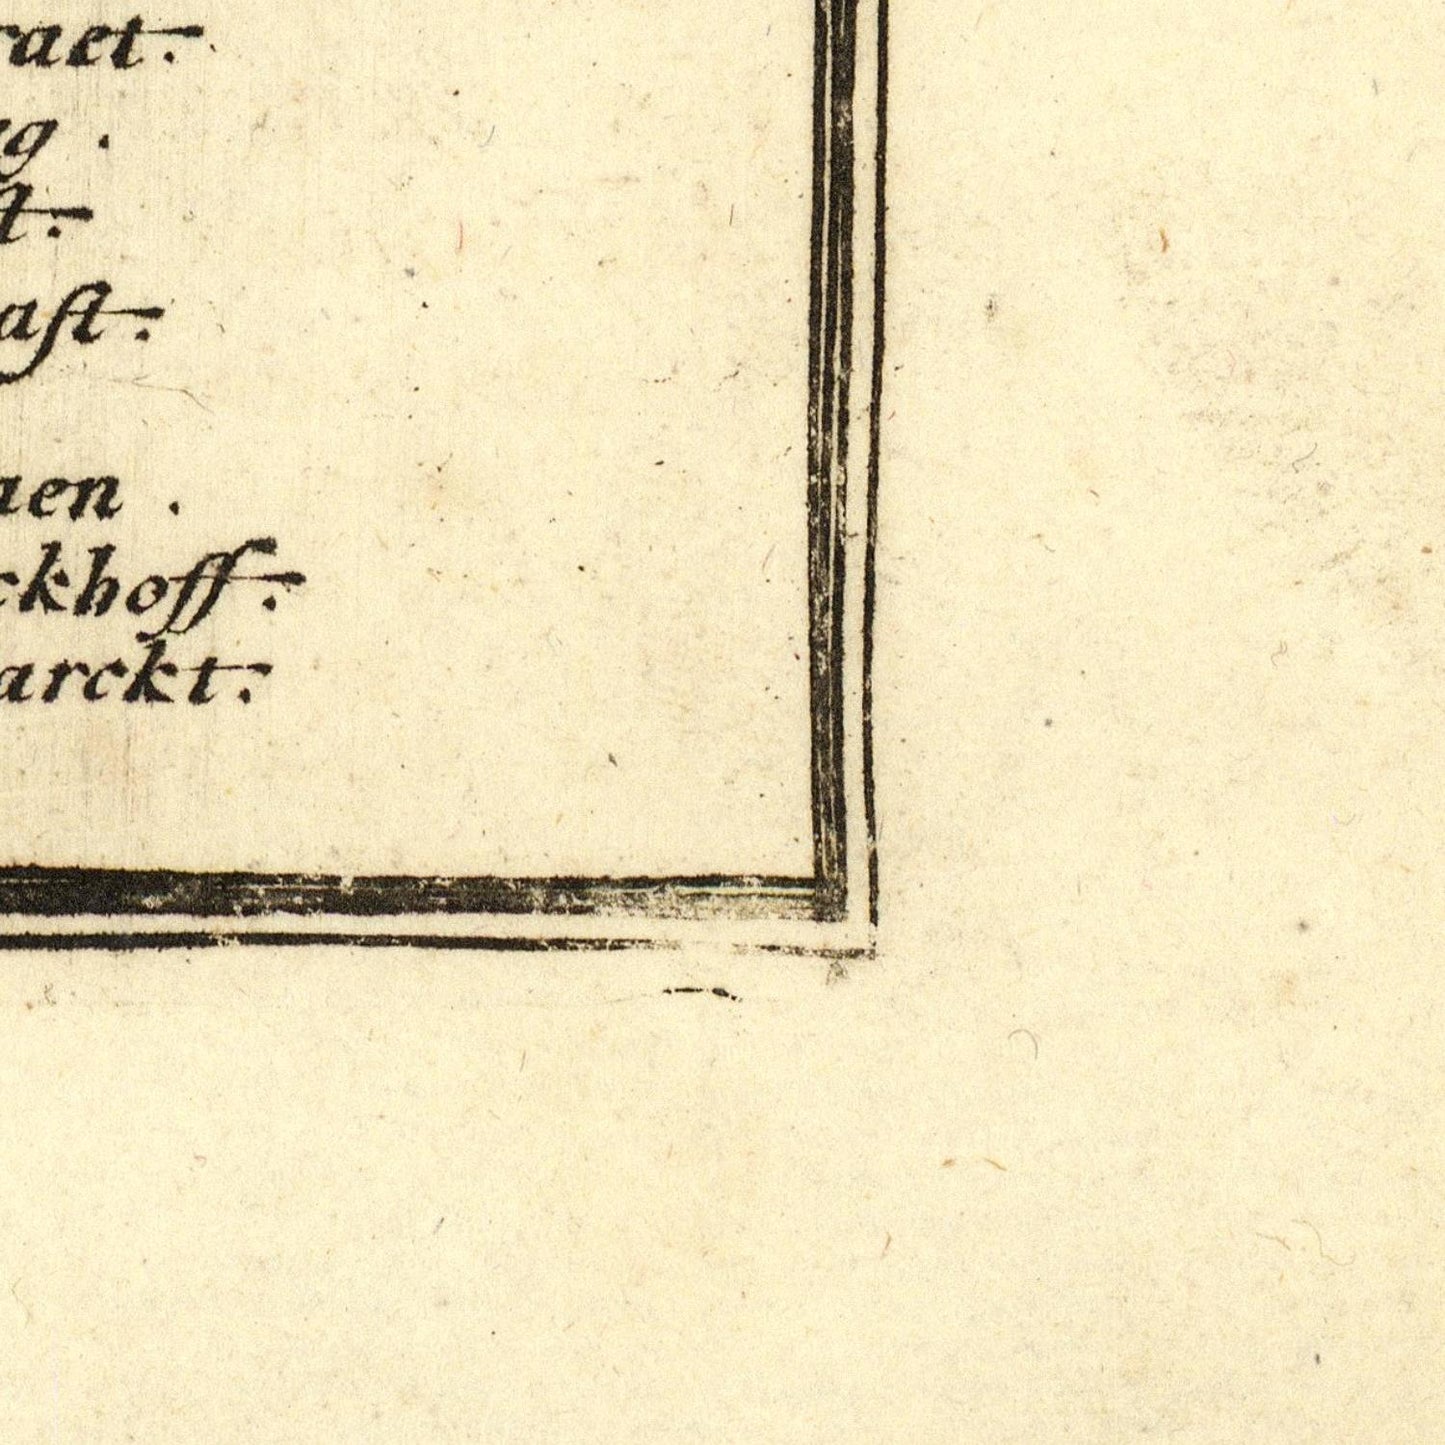 raet.
ng .
st.
ast.
aen .
ckhoff.
arckt.